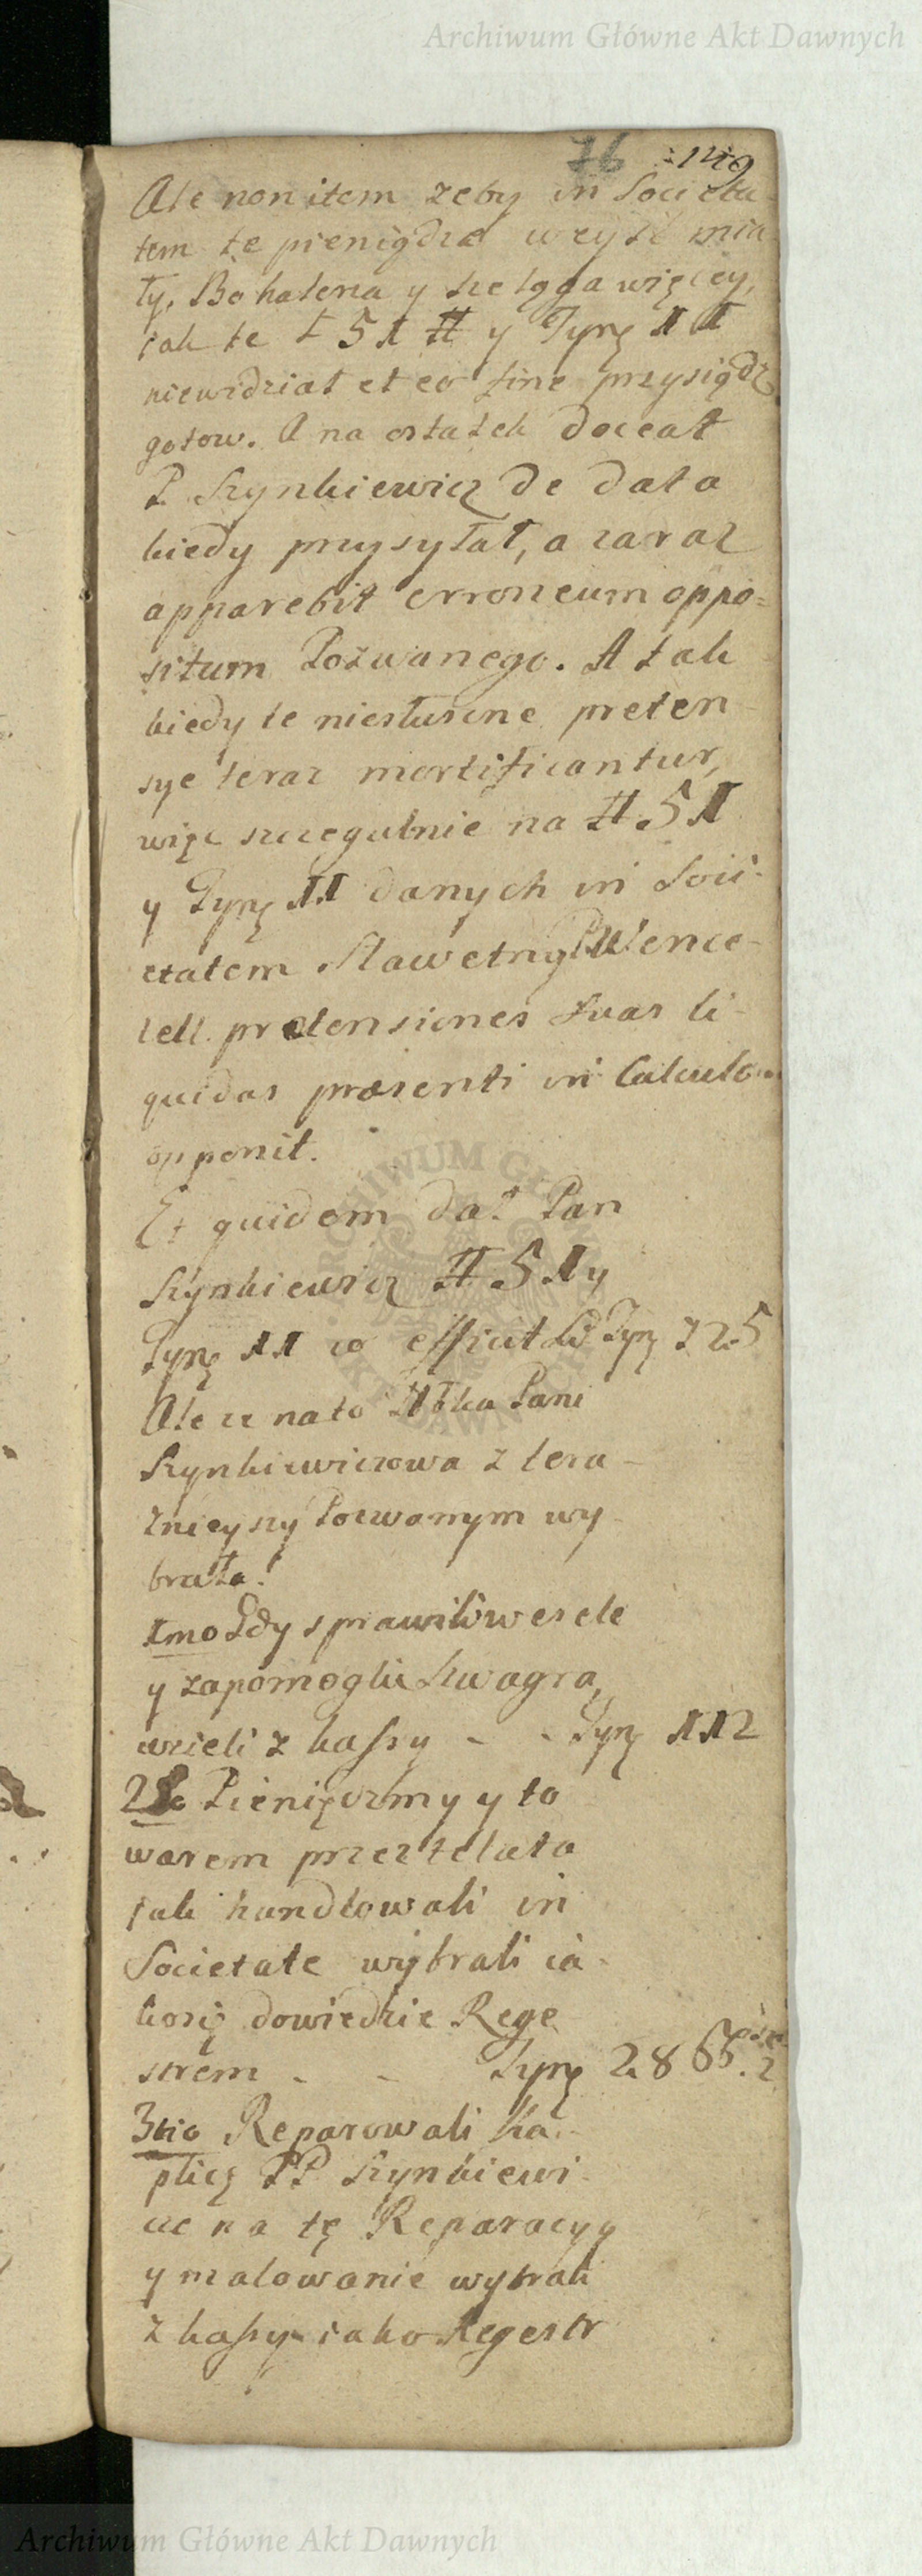 Archiwum Główne Akt Dawnych
76 149
Ale non item zeby in Societa-
tem te pieniądze weyść mia-
ły. Bo halerza y szelęga więcey,
iak te # 51 # y Tynf 11
niewidział et eo fine przysiądz
gotow. A na ostatek doceat
P. Szynkiewicz de data
kiedy przysyłał, a zaraz
apparebit erroneum oppo=
situm Pozwanego. A tak
kiedy te niesłuszne preten-
sye teraz mortificantur,
więc szczegulnie na # 51
y Tynf 11 danych in Soci-
etatem Sławetny P Wence-
tell pretensiones suas li-
quidas præsenti in Calculo
opponit.
Et quidem dał Pan
Szynkiewicz # 51 y
Tynf 11 co efficit Tynf 725
Ale ze na to Pani
Szynkiewiczowa z tera-
znieyszy Pozwanym wy-
brała.
1mo Gdy sprawili wesele
y zapomogli Szwagra,
wzieli z kassy - - Tynf 112
2do Pieniędzmy y to
warem przez te lata
iak handlowali in
Societate wybrali ia-
ko się dowiedzie Rege
strem - - Tynf 2866. 2
3tio Reparowali Ka-
plicę PP Szynkiewi-
cze na tę Reparacyą
y malowanie wybrali
z kassy iako Regestr
Archiwum Główne Akt Dawnych